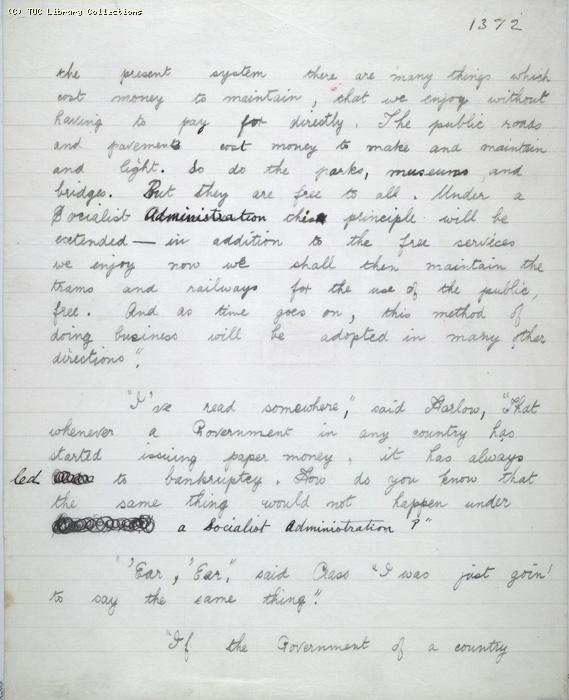 (C) TUC Library Collections
1372
the present system there are many things which
cost money to maintain, that we enjoy without
having to pay for directly. The public roads
and pavements cost money to make and maintain
and light. So do the parks, museums and
bridges. But they are free to all. Under a
Socialist Administration this principle will be
extended — in addition to the free services
we enjoy now we shall then maintain the
trams and railways for the use of the public,
free. And as time goes on, this method of
doing business will be adopted in many other
directions".
"I've read somewhere," said Harlow, "That
whenever a Government in any country has
started issuing paper money, it has always
led to bankruptcy. How do you know that
the same thing would not happen under
a Socialist Administration?"
"'Ear, 'Ear," said Crass "I was just goin'
to say the same thing".
"If the Government of a country